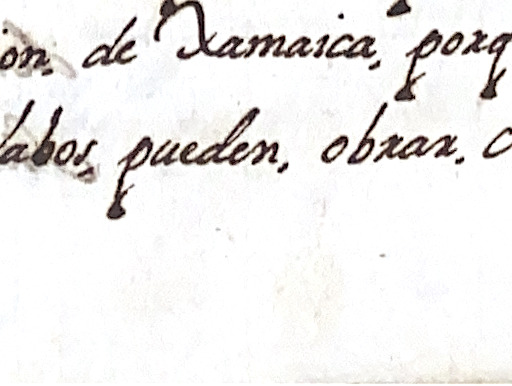 ion, de Xamaica, porq
labos, pueden, obrar. c